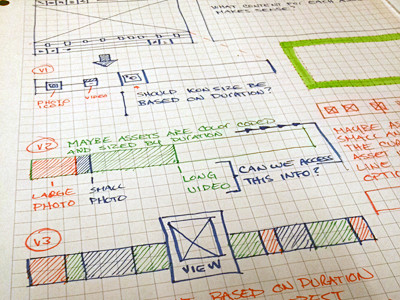 WHAT CONTENT FOR EACH
MAKES SENSE?
V1
PHOTO
VIDEO
SHOULD ICON SIZE BE
BASED ON DURATION?
V2
MAYBE ASSETS ARE COLOR CODED
AND SIZED BY DURATION
LARGE
PHOTO
SMALL
PHOTO
LONG
VIDEO
CAN WE ACCESS
THIS INFO?
MAYBE
SMALL AN
THE CUR
ASSET
LINE
OPTIO
V3
VIEW
BASED ON DURATION